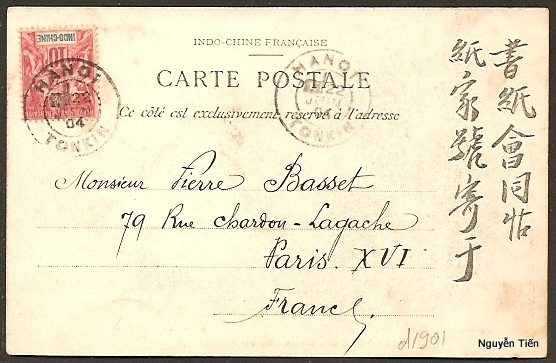 INDO-CHINE
10
HANOI
22
04
TONKIN
INDO-CHINE FRANÇAISE
CARTE POSTALE
HANOI
22
JUIN
04
TONKIN
Ce côté est exclusivement réservé à l'adresse
Monsieur Pierre Basset
79 Rue Chardon-Lagache
Paris. XVI
France
紙會同
紙家號寄于
d1901
Nguyễn Tiến